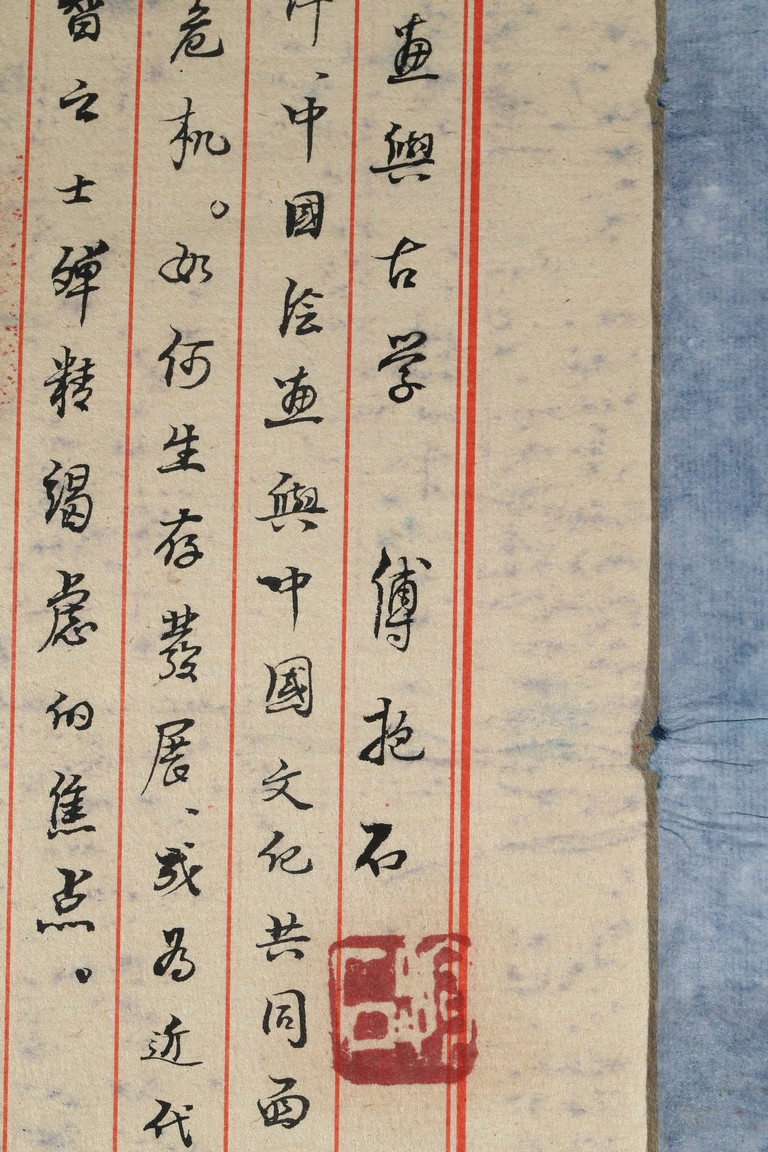 畫與古学 傅抱石
、中國绘畫與中國文化共同面
危机。如何生存發展、成為近代
智之士殚精竭慮的焦点。